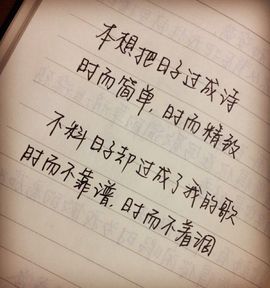 本想把日子过成诗
时而简单,时而精致
不料日子却过成了我的歌
时而不靠谱,时而不着调